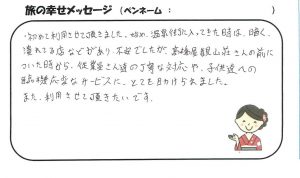 旅の幸せメッセージ (ペンネーム: )
・初めて利用させて頂きました。始め、温泉街に入ってきた時は、暗く、
潰れてる店などがあり、不安でしたが、高橋屋観山荘さんの前に
ついた時から、従業員さん達の丁寧な対応や、子供達への
臨機応変なサービスに、とても助けられました。
また、利用させて頂きたいです。